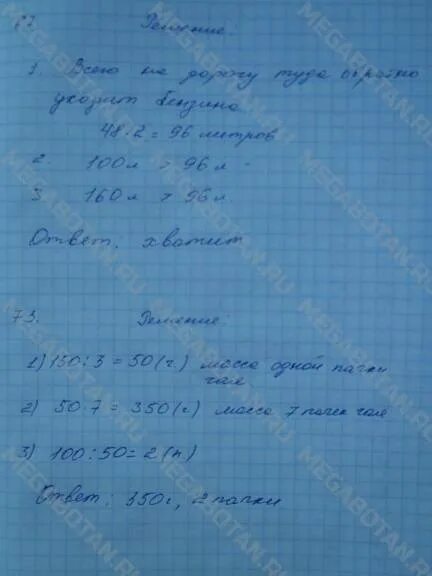 Решение:
1. Всего на дорогу туда обратно
уходит бензина
48·2 = 96 метров
2. 100 л > 96 л
3. 160 л > 96 л.
Ответ: хватит
73. Решение:
1) 150:3 = 50 (г.) масса одной пачки
чая.
2) 50·7 = 350 (г) масса 7 пачек чая
3) 100:50 = 2 (п)
Ответ: 350 г, 2 пачки
MEGABOTAN.RU